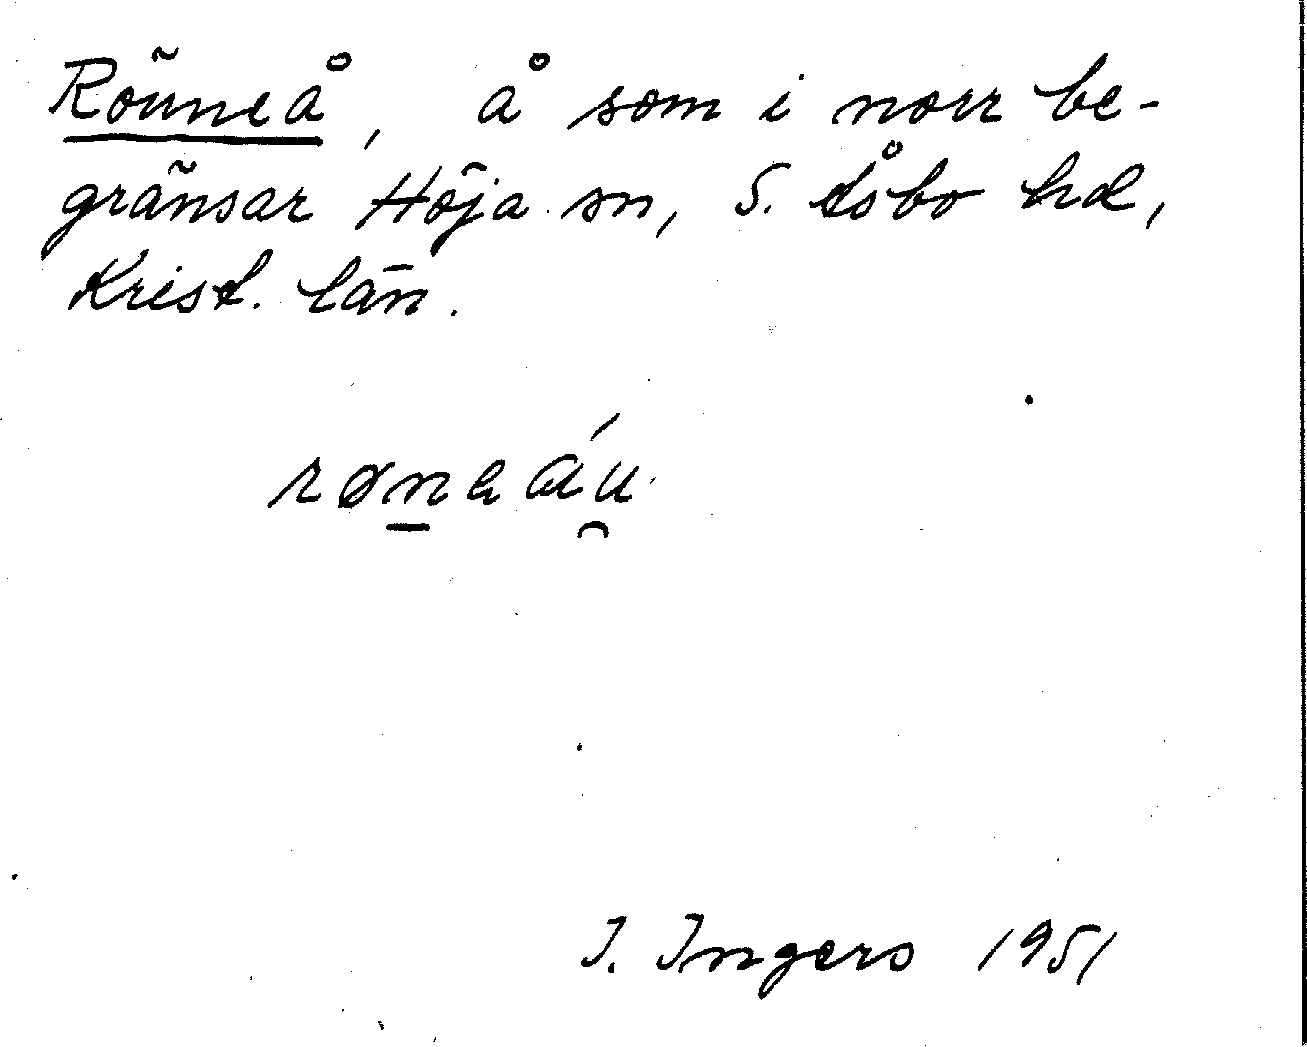 Rönneå, å som i norr be-
gränsar Höja sn, S. Åsbo hd,
Krist. län.
rønaáu
I. Ingers 1951